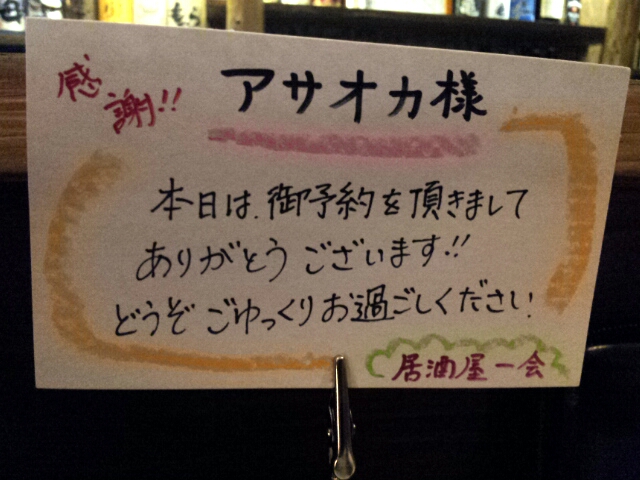 感謝!!
アサオカ様
本日は、御予約を頂きまして
ありがとうございます!!
どうぞごゆっくりお過ごしください!
居酒屋一会